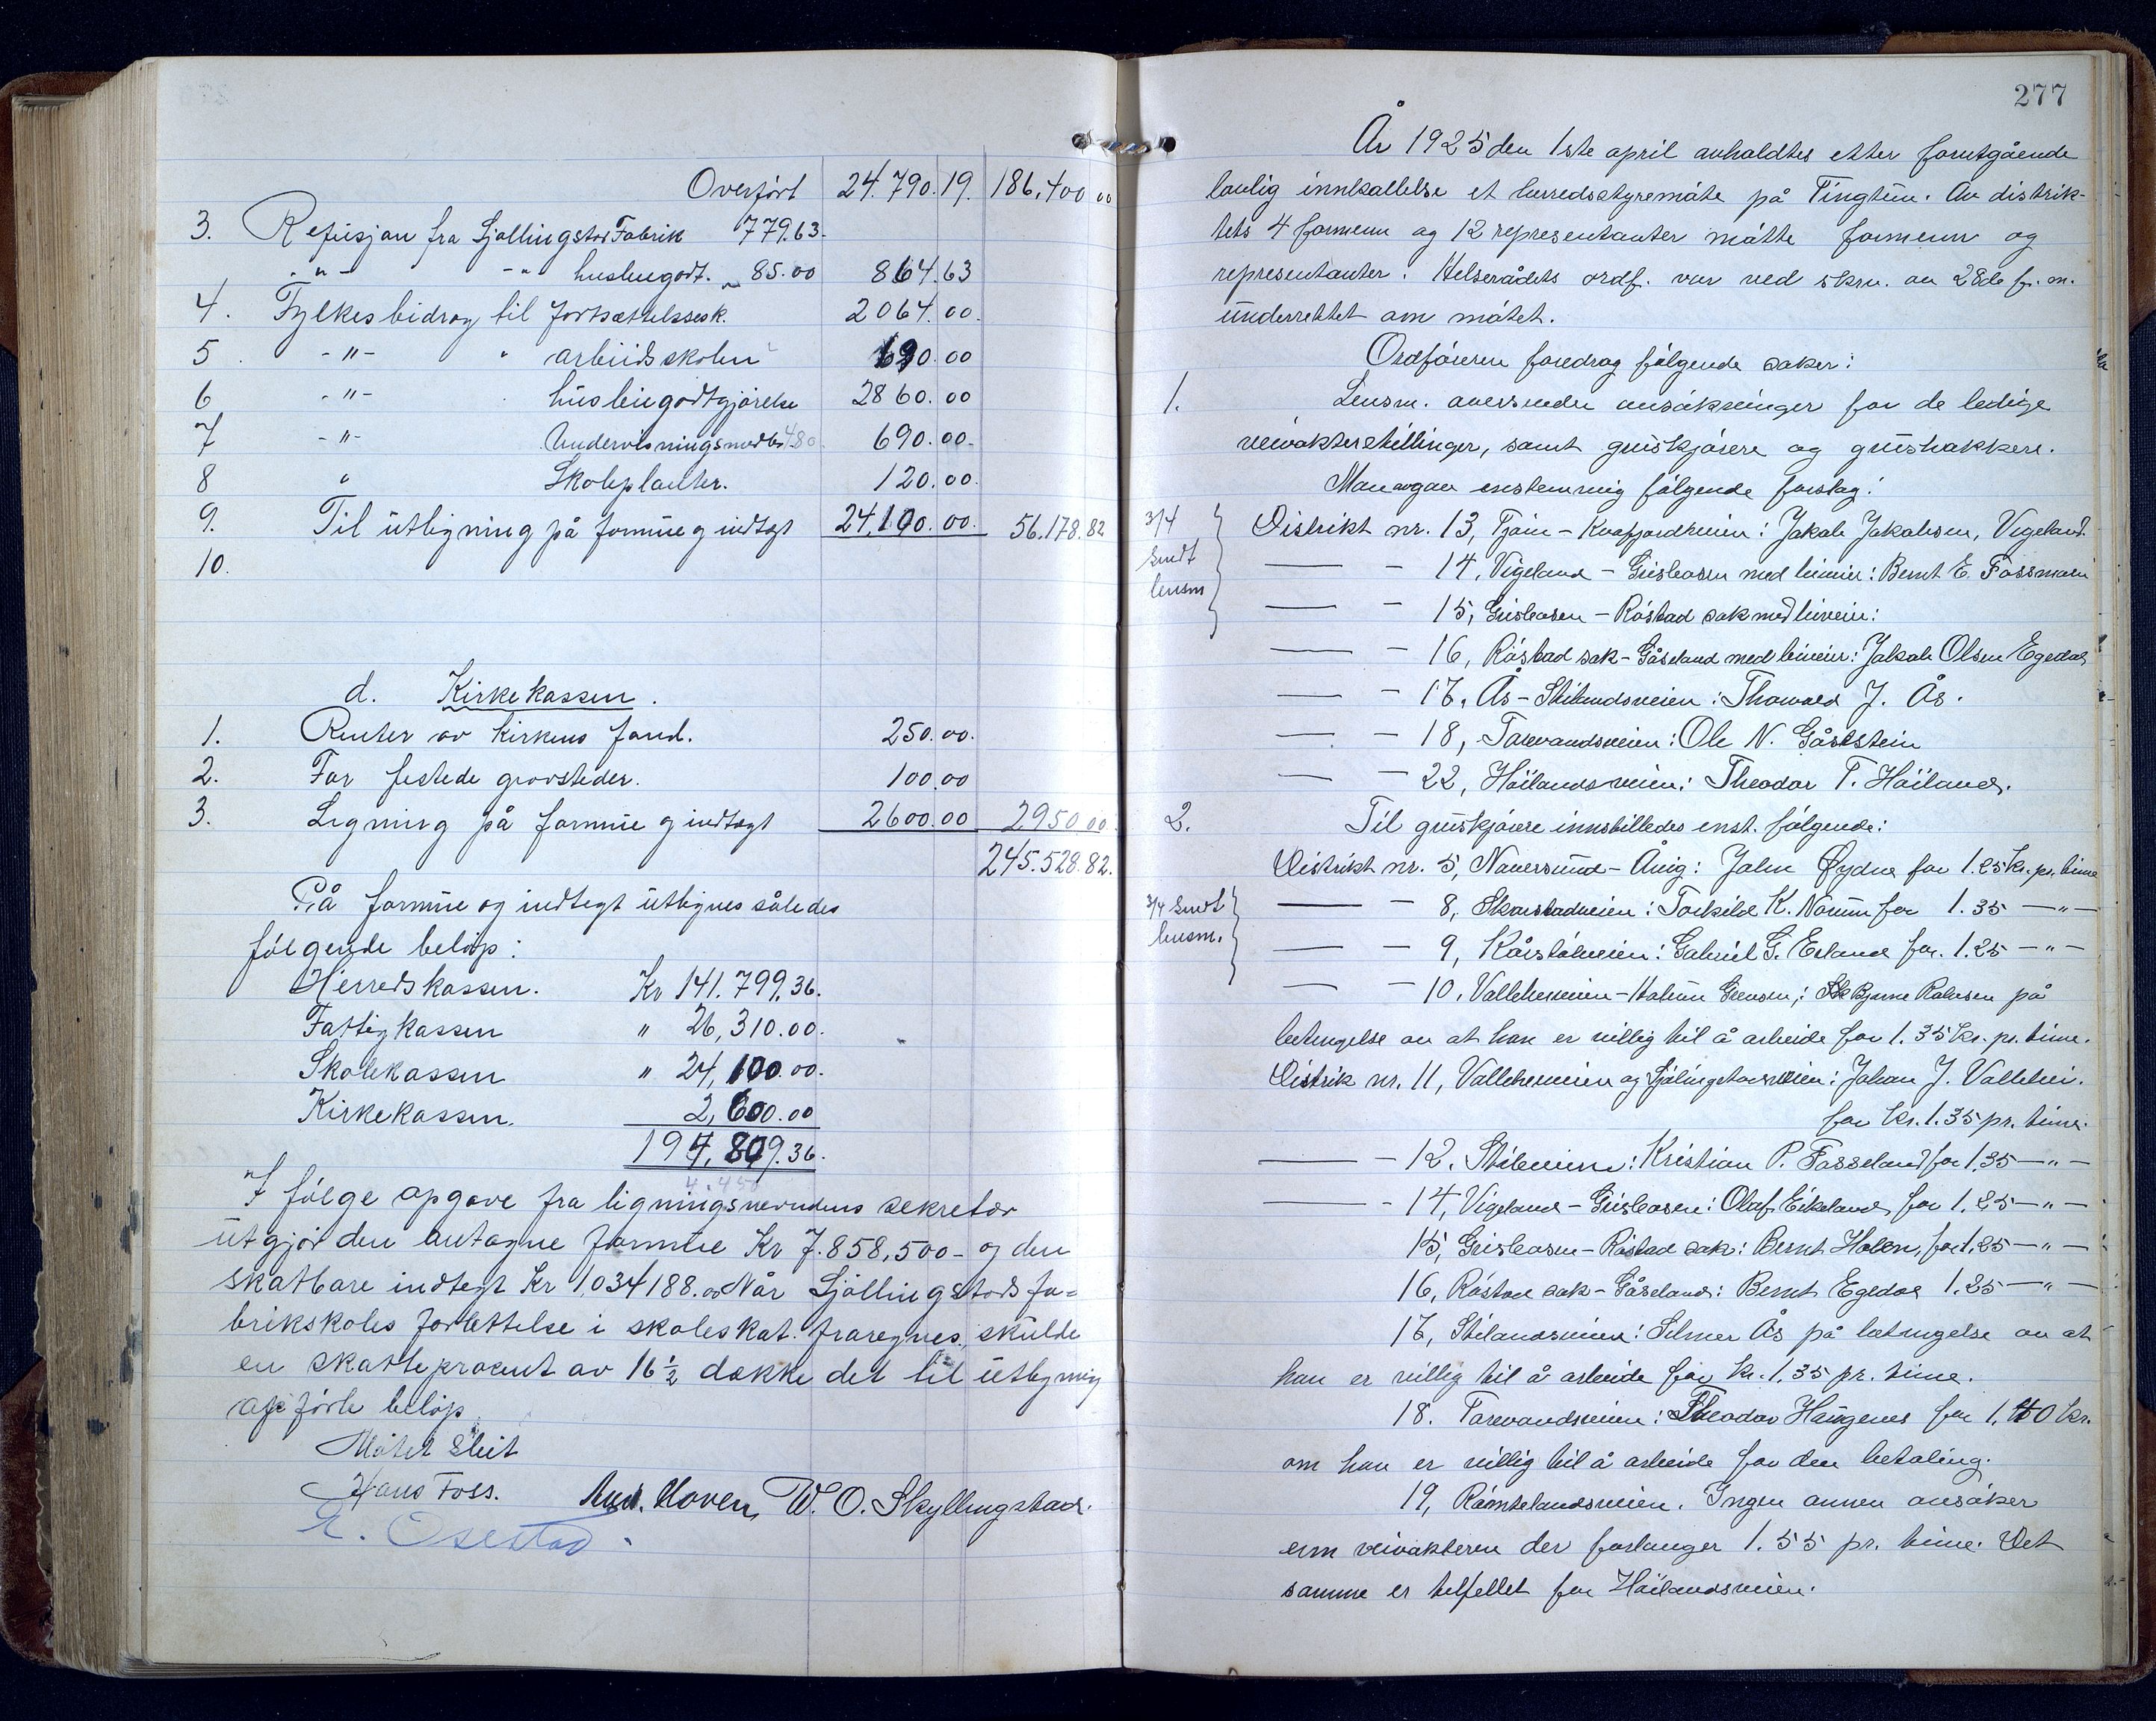 Overført 24.790.19. 186.400 00
3. Refusjon fra Sjøllingstad Fabrik 779.63.
-"- -"- husleiegodt. " 85.00 864.63
4. Fylkesbidrag til fortsættelsessk. 2064.00.
5. -"- " arbeidsskolen 690.00
6 -"- husleiegodtgjørelse 2860.00
7 -"- Undervisningsmatr. 480 690.00-
8 " Skoleplanter. 120.00.
9. Til utligning på formue og indtægt 24,100.00. 56.178.82
10.
d. Kirkekassen.
1. Renter av kirkens fond. 250.00.
2. For festede gravsteder. 100.00
3. Ligning på formue og indtægt 2600.00 2950 00.
245.528.82.
På formue og indtegt utlignes således
følgende beløp:
Herredskassen. Kr 141.799.36.
Fattigkassen " 26,310.00.
Skolekassen " 24,100.00.
Kirkekassen. 2,600.00
194,809.36.
4.450
I følge opgave fra ligningsnevndens sekretær
utgjør den antagne formue Kr 7.858,500- og den
skatbare indtegt Kr 1,034188.00 Når Sjøllingstads fa=
brikskoles forlettelse i skoleskat. fraregnes, skulde
en skatteprocent av 16 ½ dække det til utligning
opførte beløp.
Møtet slut
Hans Foss. And. Hoven, W. O. Skyllingstad.
E. Osestad.
277
År 1925 den 1ste april avholdtes etter forutgående
lovlig innkallelse et herredsstyremøte på Tingtun. Av distrik-
tets 4 formenn og 12 representanter møtte formenn og
representanter. Helserådets ordf. var ved skriv. av 28de f. m.
underrettet om møtet.
Ordføreren foredrog følgende saker:
1. Lensm. oversender ansøkninger for de ledige
veivokterstillinger, samt gruskjørere og grushakkere.
Man avgav enstemmig følgende forslag:
3/4 Distrikt nr. 13, Tjøm - Kvafjordveien: Jakob Jakobsen, Vigeland.
sendt —— - 14, Vigeland - Grisleåsen med biveier: Bernt E. Fossmoen
lensm —— - 15, Grisleåsen - Røstad sak med bivein:
—— - 16, Røstad sak - Gåseland med biveier: Jakob Olsen Egedal
—— - 17, Ås - Stilandsveien: Thorvald J. Ås.
—— - 18, Tarvandsveien: Ole N. Gåsestein
—— - 22, Høilandsveien: Theodor T. Høiland.
2. Til gruskjørere innstilledes enst. følgende:
Distrikt nr. 5, Naversund - Ånig: John Øydne for 1.25 Kr. pr. time
3/4 sendt —— - 8, Skarstadveien: Torkild K. Noum for 1.35 —"—
lensm. —— - 9, Kårstølveien: Gabriel G. Eeland for. 1.25 —"—
—— - 10, Valleheiveien - Halum Grensen,: Bjarne Robersen på
betingelse av at han er villig til å arbeide for 1.35 Kr. pr. time.
Distrik nr. 11, Valleheiveien og Sjølingstadveien: Johan J. Vallehei.
for kr. 1.35 pr. time.
—— - 12. Stiveien: Kristian P. Fasseland for 1.35 —"—
—— - 14, Vigeland - Grisleåsen: Olaf Eikeland for 1.25 —"—
15, Grisleåsen - Røstad sak: Bernt Holen, for 1.25 —"—
16, Røstad sak - Gåseland: Bernt Egedal 1.25 —"—
17, Stilandsveien: Selmer Ås på betingelse av at
han er villig til å arbeide for kr. 1,35 pr. time.
18. Tarvandsveien: Theodor Haugenes for 1,40 kr.
om han er villig til å arbeide for den betaling.
19, Rømtelandsveien. Ingen annen ansøker
enn veivokteren der forlanger 1.55 pr. time. Det
samme er tilfellet for Høilandsveien.